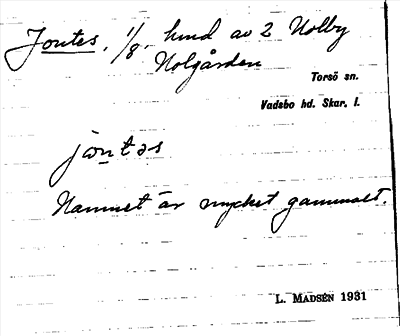 Jontes, 1/8 hmd av 2 Nolby
Nolgården
Torsö sn.
Vadsbo hd. Skar. l.
jontəs
Namnet är mycket gammalt.
L. MADSÉN 1931